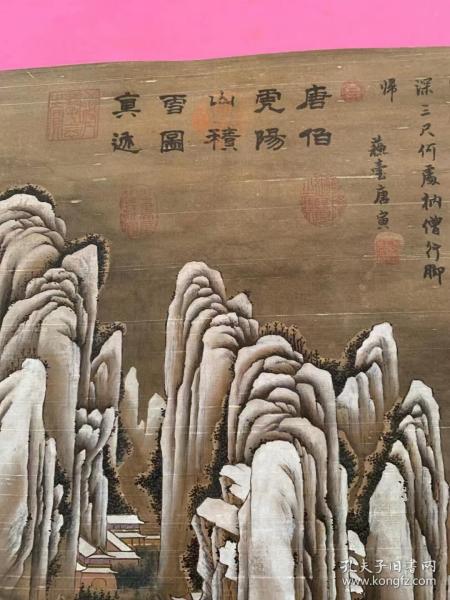 深三尺何處衲僧行脚
帰
蘇臺唐寅
唐伯
虎陽
山積
雪圖
真迹
孔夫子旧书网
www.kongfz.com